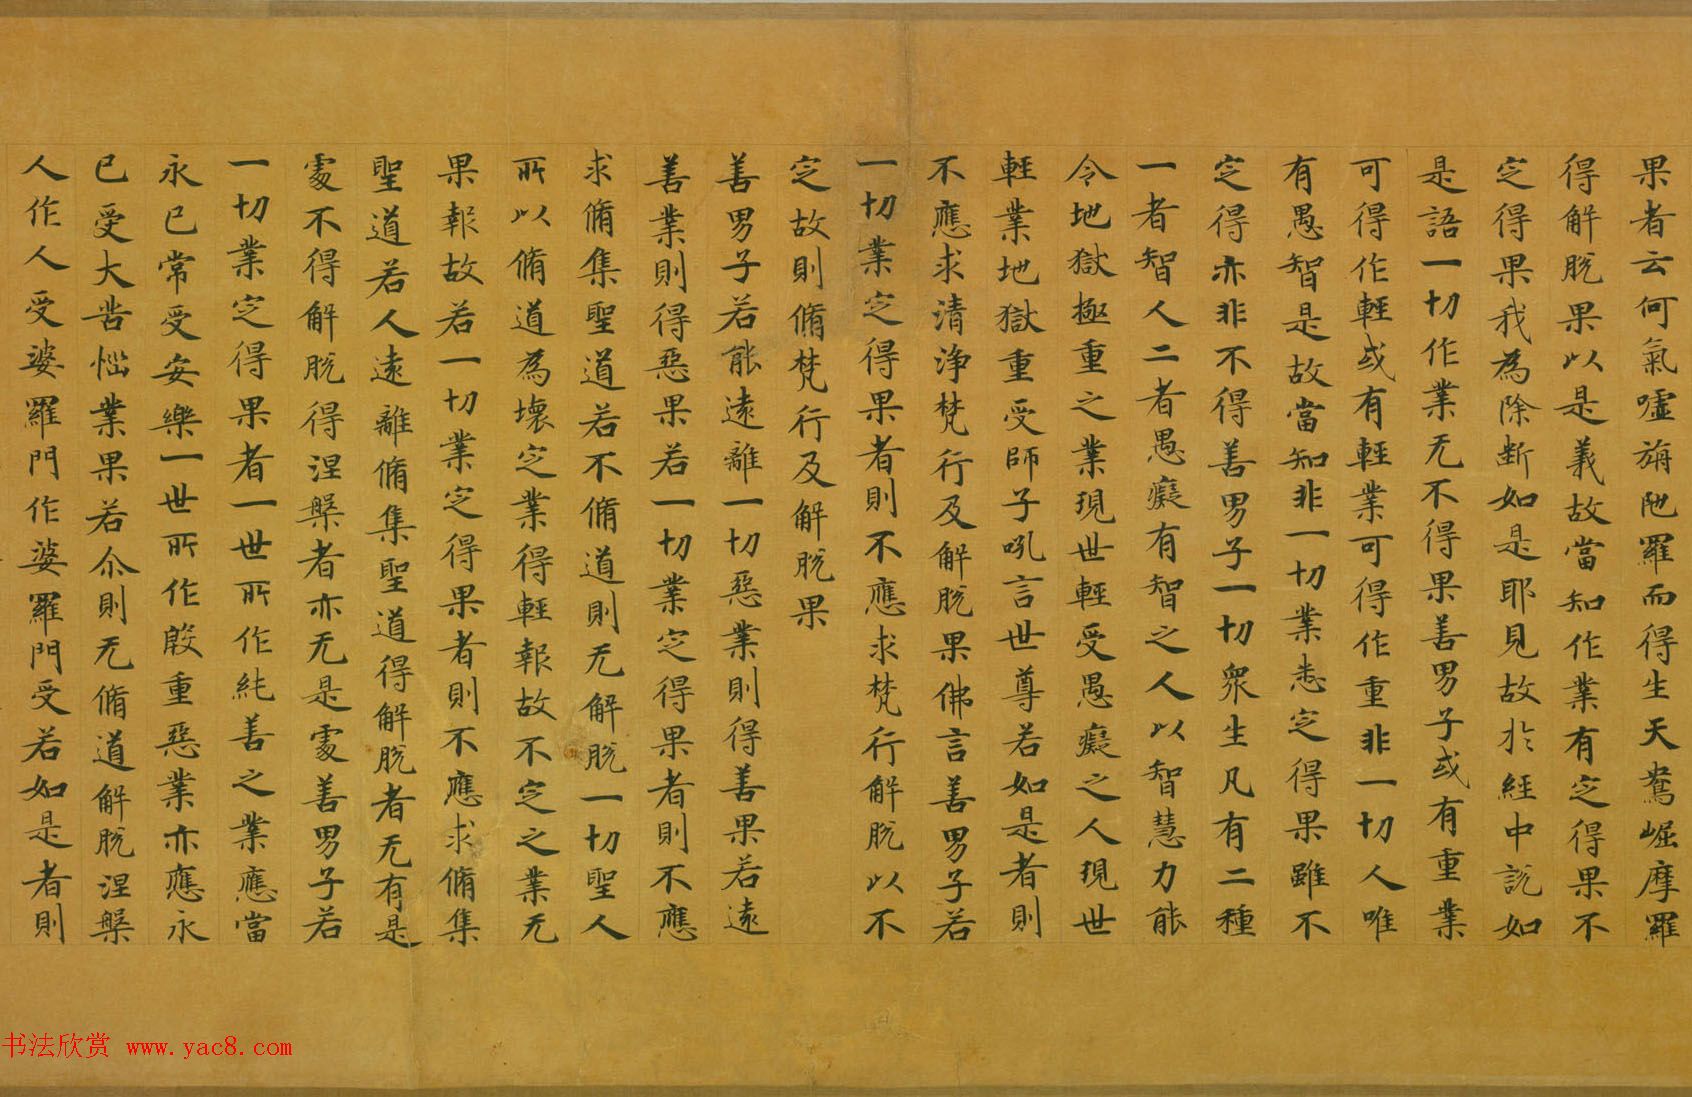 果者云何氣嘘旃陁羅而得生天鴦崛摩羅
得解脫果以是義故當知作業有定得果不
定得果我為除斷如是耶見故於經中說如
是語一切作業无不得果善男子或有重業
可得作輕或有輕業可得作重非一切人唯
有愚智是故當知非一切業悉定得果雖不
定得亦非不得善男子一切眾生凡有二種
一者智人二者愚癡有智之人以智慧力能
令地獄極重之業現世輕受愚癡之人現世
輕業地獄重受師子吼言世尊若如是者則
不應求清淨梵行及解脫果佛言善男子若
一切業定得果者則不應求梵行解脫以不
定故則脩梵行及解脫果
善男子若能遠離一切惡業則得善果若遠
善業則得惡果若一切業定得果者則不應
求脩集聖道若不脩道則无解脫一切聖人
所以脩道為壞定業得輕報故不定之業无
果報故若一切業定得果者則不應求脩集
聖道若人遠離脩集聖道得解脫者无有是
處不得解脫得涅槃者亦无是處善男子若
一切業定得果者一世所作純善之業應當
永已常受安樂一世所作殷重惡業亦應永
已受大苦惱業果若尒則无脩道解脫涅槃
人作人受婆羅門作婆羅門受若如是者則
书法欣赏 www.yac8.com